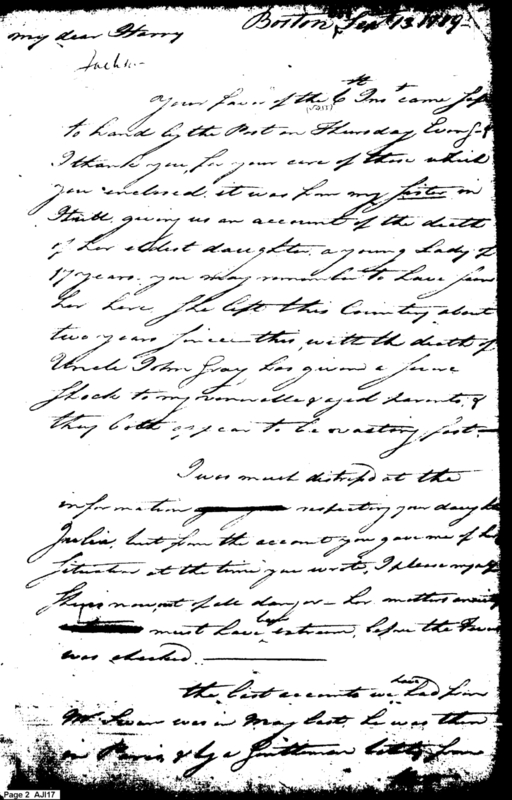 Boston, Sept 13. 1789
my dear Harry
Jackson
Your favor of the 6th Inst came safe
to hand by the Post on Thursday Eveng &
I thank you, for your care of those which
you enclosed. it was from my sister in
giving us an account of the death
of her eldest daughter, a young Lady of
17 years. you may remember to have seen
her here. She left this Country about
two years since this, with the death of
Uncle John Gray has given a severe
shock to my venerable & aged parents, &
they both appear to be wasting fast
I was much distress'd at the
information respecting your daughter
Julia, but from the account you gave me of her
situation at the time you wrote, I please myself
She is now out of all danger - her mothers anxiety
must have been extreme, before the Fever
was checked.
the last accounts we have had from
Mr Swan was in May last. he was then
in Paris, & by a Gentleman lately from
Page 2 AJI17